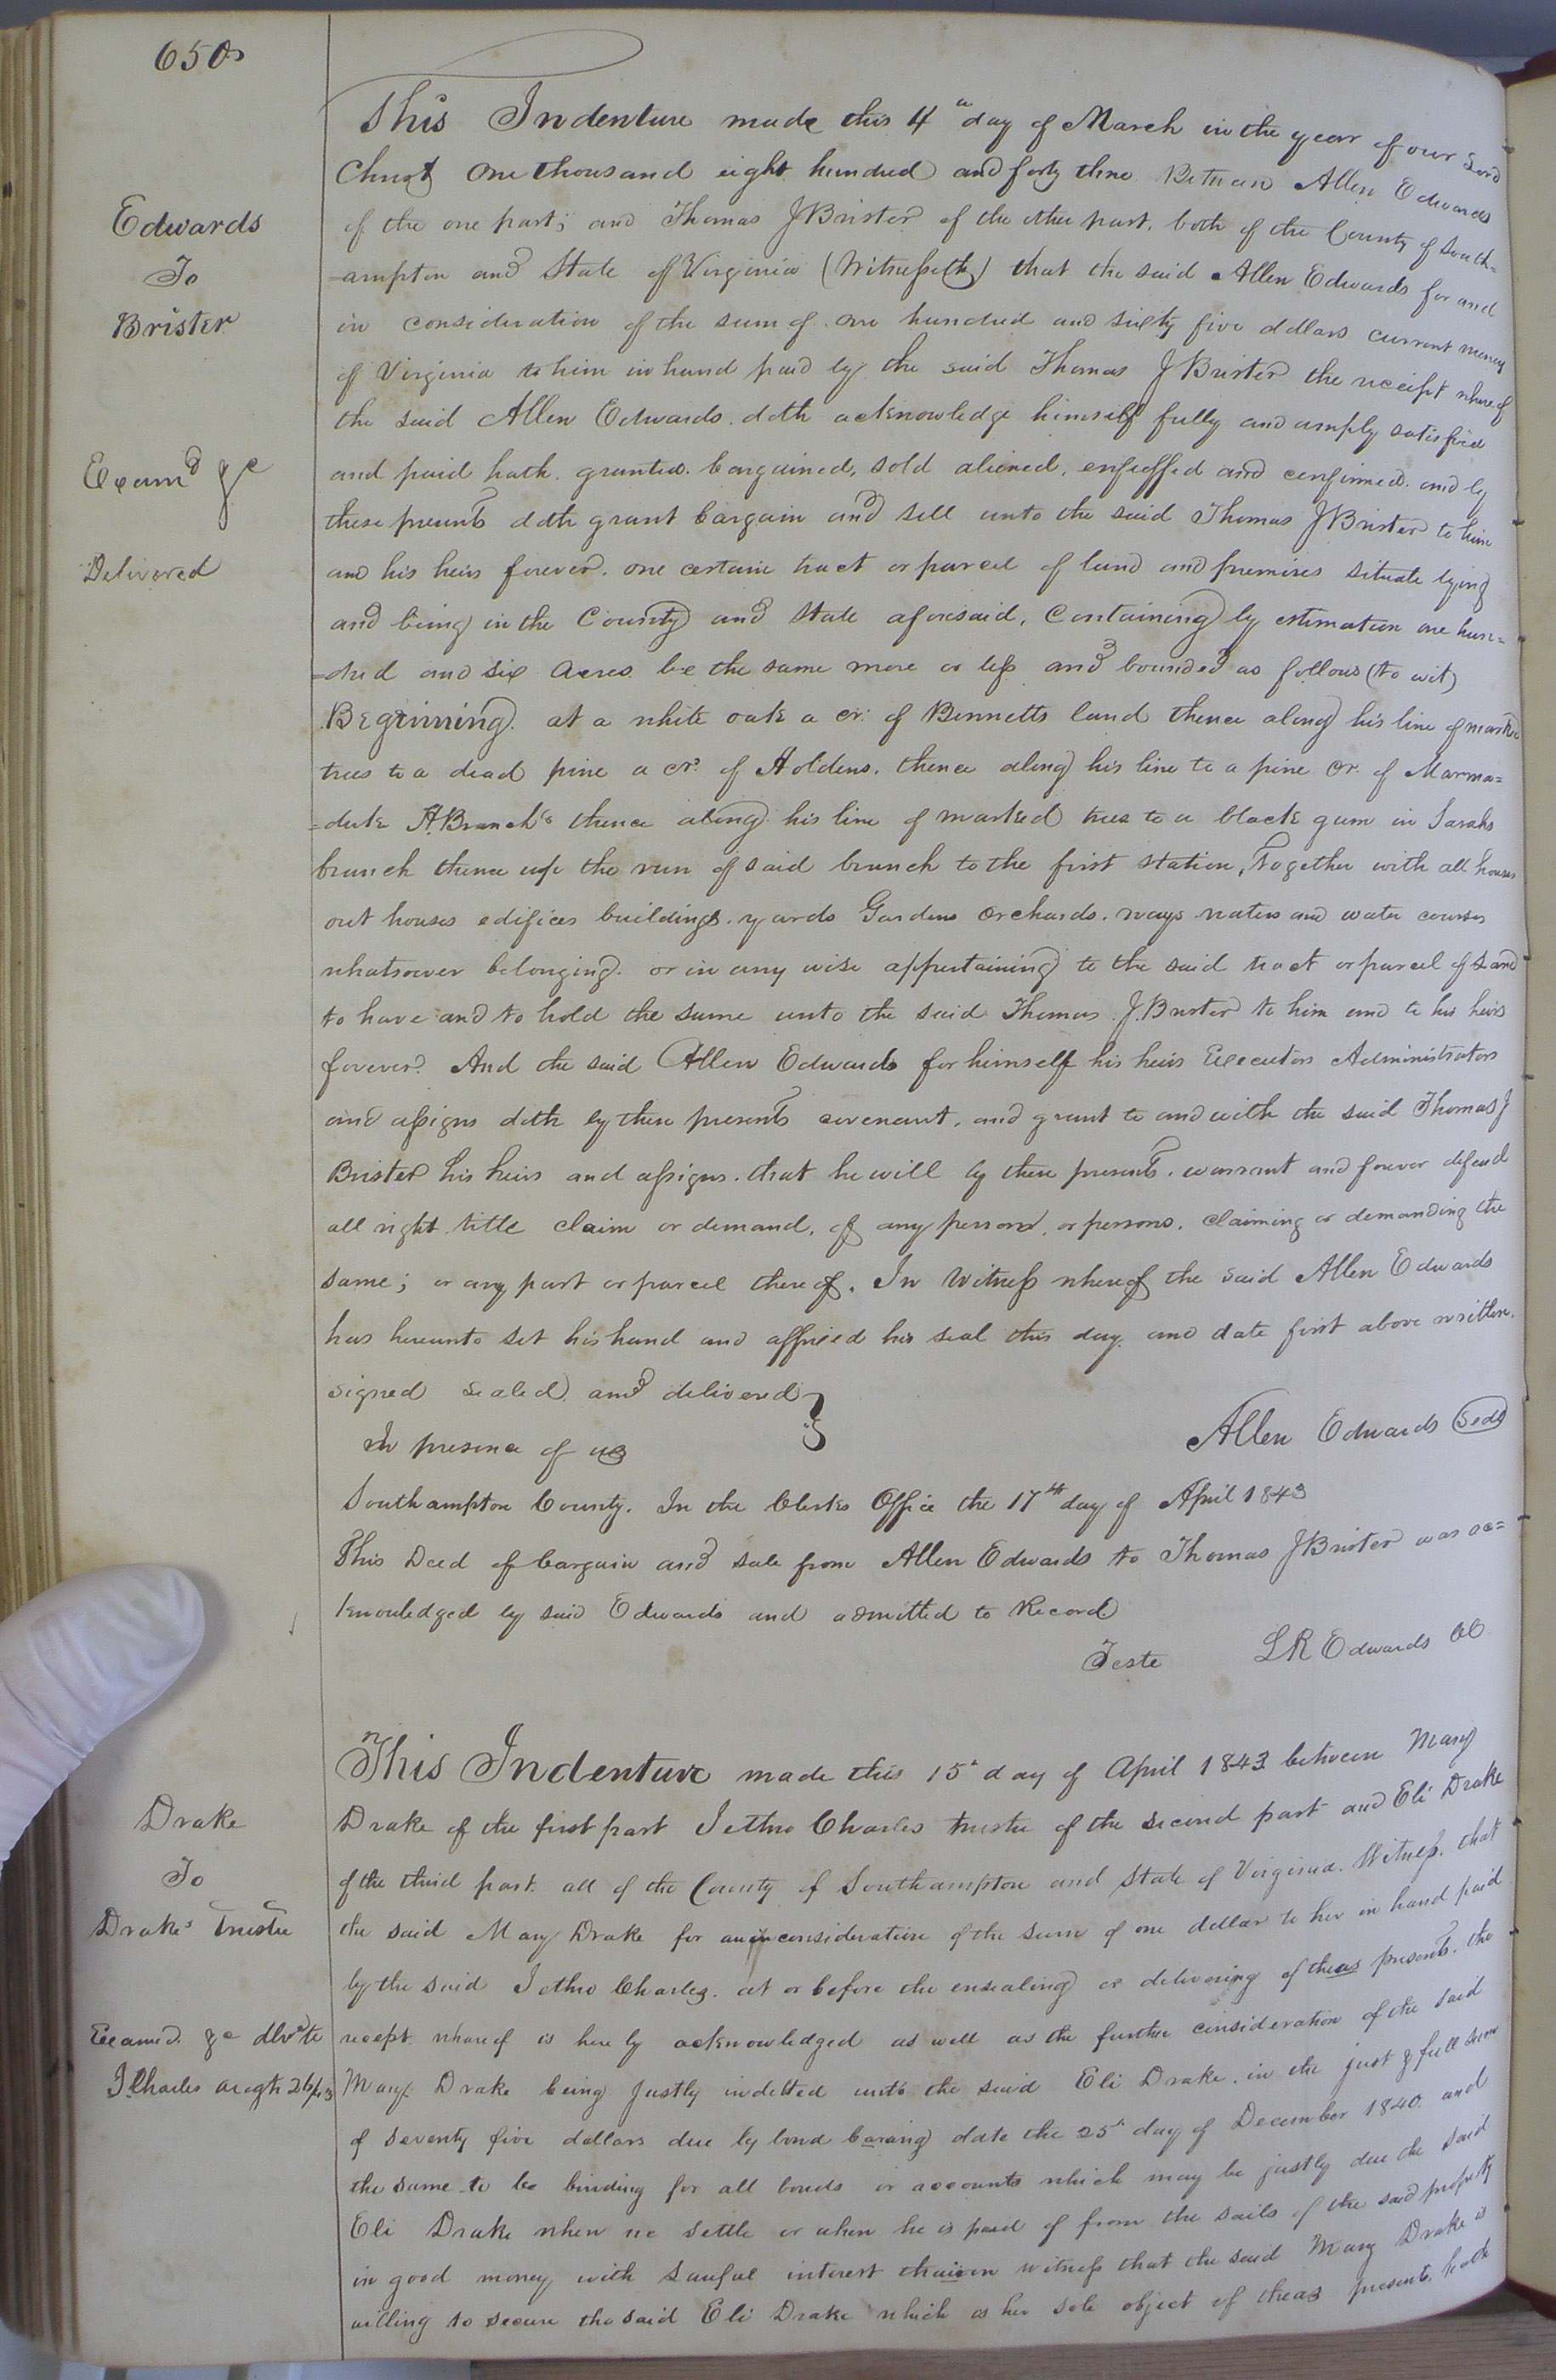 650
This Indenture made this 4th day of March in the year of our Lord
Christ One thousand eight hundred and forty three Between Allen Edwards
Edwards
of the one part; and Thomas J Brister of the other part, both of the County of South=
To
=ampton and State of Virginia (Witnesseth) that the said Allen Edwards for and
Brister
in consideration of the sum of one hundred and sixty five dollars current money
of Virginia to him in hand paid by the said Thomas J Brister the receipt whereof
the said Allen Edwards doth acknowledge himself fully and amply satisfied
Examd &c
and paid hath granted bargained, sold aliened, enfeoffed and confirmed and by
these presents doth grant bargain and sell unto the said Thomas J Brister to him
Delivered
and his heirs forever. one certain tract or parcel of land and premises situate lying
and being in the County and State aforesaid, Containing by estimation one hun=
=dred and six Acres be the same more or less and bounded as follows (to wit)
Beginning at a white oak a cr. of Bennetts land thence along his line of marked
trees to a dead pine a cr. of Holdens. thence along his line to a pine cr. of Marma=
=duke A. Branch's thence along his line of marked trees to a black gum in Sarahs
branch thence up the run of said branch to the first station, Together with all houses
out houses edifices buildings yards Gardens Orchards. ways waters and water courses
whatsoever belonging or in any wise appertaining to the said tract or parcel of Land
to have and to hold the same unto the said Thomas J. Brister to him and to his heirs
forever. And the said Allen Edwards for himself his heirs Executors Administrators
and assigns doth by these presents covenant, and grant to and with the said Thomas J
Brister his heirs and assigns. that he will by these presents warrant and forever defend
all right title claim or demand, of any person or persons. claiming or demanding the
same; or any part or parcel thereof. In Witness whereof the said Allen Edwards
has hereunto set his hand and affixed his seal this day and date first above written.
signed sealed and delivered
In presence of us
Allen Edwards Seal
Southampton County. In the Clerks Office the 17th day of April 1843
This Deed of bargain and sale from Allen Edwards to Thomas J Brister was ac=
knowledged by said Edwards and admitted to Record
Teste L R Edwards CC
This Indenture made this 15th day of April 1843 between Mary
Drake
Drake of the first part Jethro Charles trustee of the second part and Eli Drake
To
of the third part. all of the County of Southampton and State of Virginia. Witness. that
Drakes Trustee
the said Mary Drake for an in consideration of the sum of one dollar to her in hand paid
by the said Jethro Charles. at or before the ensealing or delivering of theas presents. the
Examd. &c dlvd to
receipt whareof is here by acknowledged as well as the further consideration of the said
J Charles
Mary Drake being justly indetted unto the said Eli Drake. in the just & full sum
of Seventy five dollars due by bond baraing date the 25th day of December 1840. and
the same to be binding for all bonds or accounts which may be justly due the said
Eli Drake when we settle or when he is paid of from the sails of the said property
in good money with Lawful interest thairon witness that the said Mary Drake is
willing to secure the said Eli Drake which is her sole object of theas presents, hath